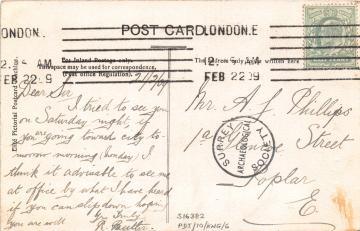 LONDON. POST CARD. LONDON.E
12. 5 AM
FEB 22 09
12. 5 AM
FEB 22 09
For Inland Postage only.
This space may be used for correspondence.
(Post Office Regulation).
The address only to be written here
21/2/09
Dear Sir
I tried to see you
on Saturday night, if
you going toward city to-
morrow morning (Monday) I
think it advisable to see me
at office by what I have heard
if you can slip down hoping
you are well
Yrs Truly
Mr. A. J. Phillips
Street
Poplar
E.
SURREY ARCHAEOLOGICAL SOCIETY
S16382
PDT/10/KWG/6